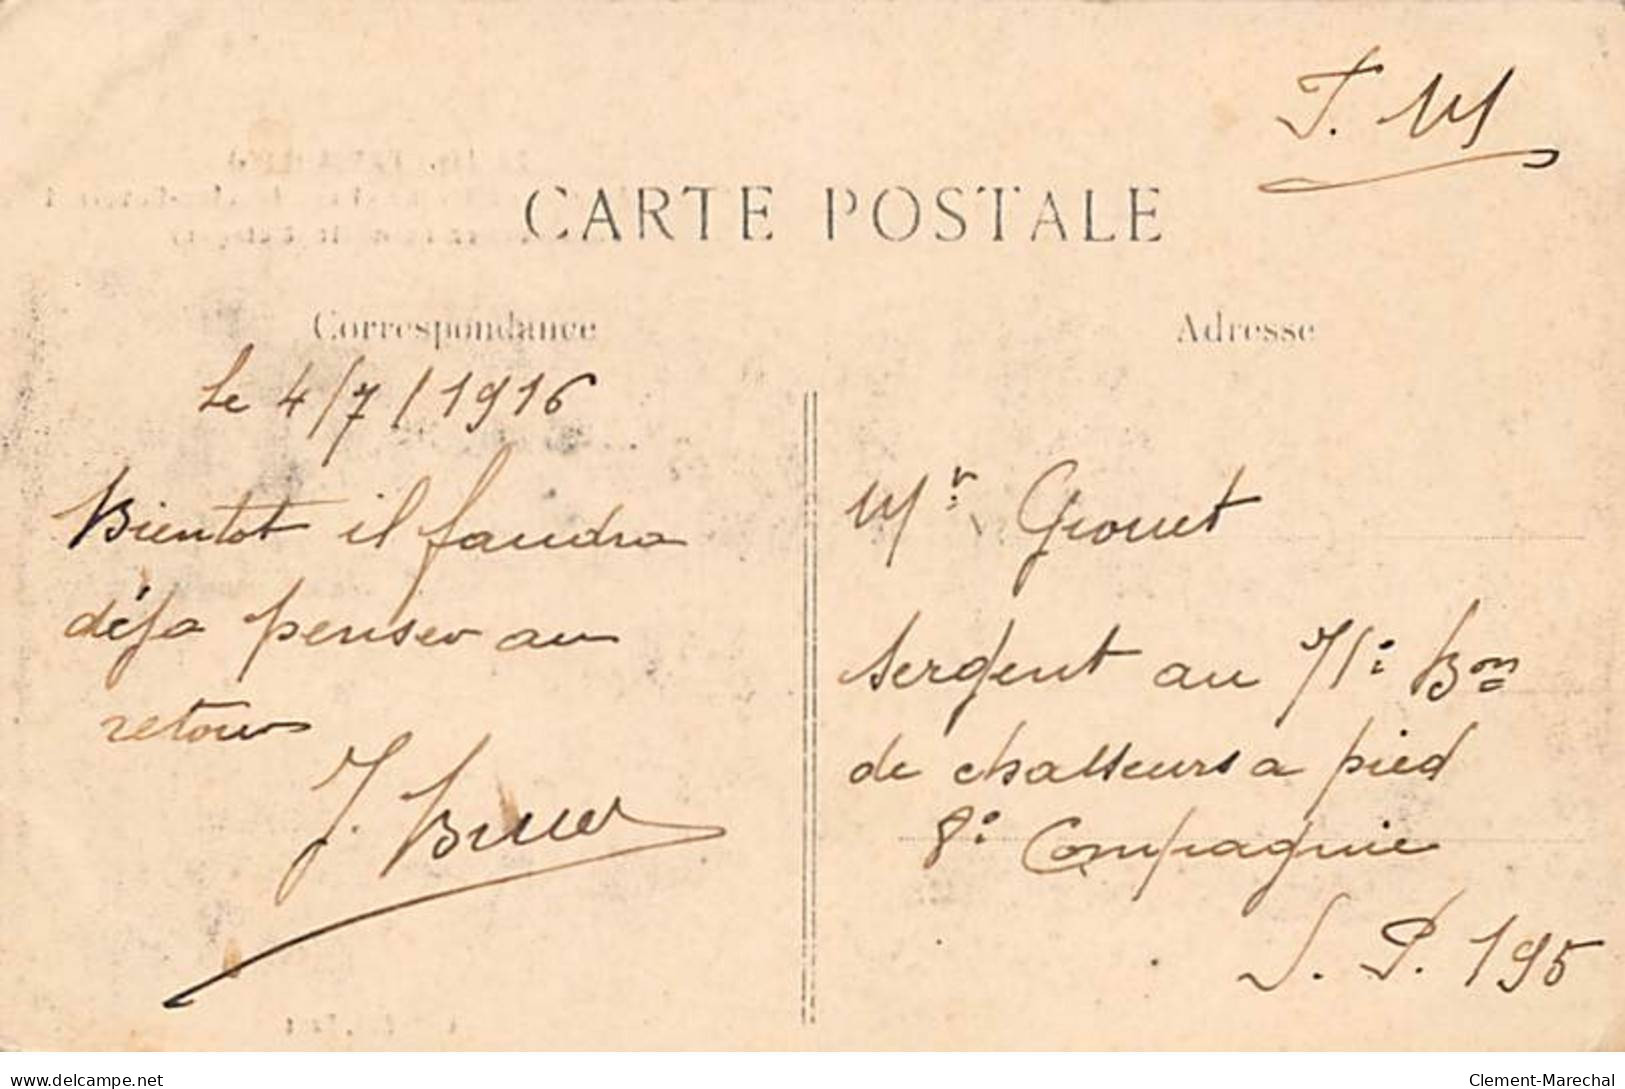 F. M
CARTE POSTALE
Correspondance
le 4/7/1916
Bientot il faudra
déja penser au
retour
Adresse
Mr Grouet
Sergent au 71e Bon
de chasseurs a pied
8e Compagnie
S. P. 195
delcampe.net
Clement-Marechal